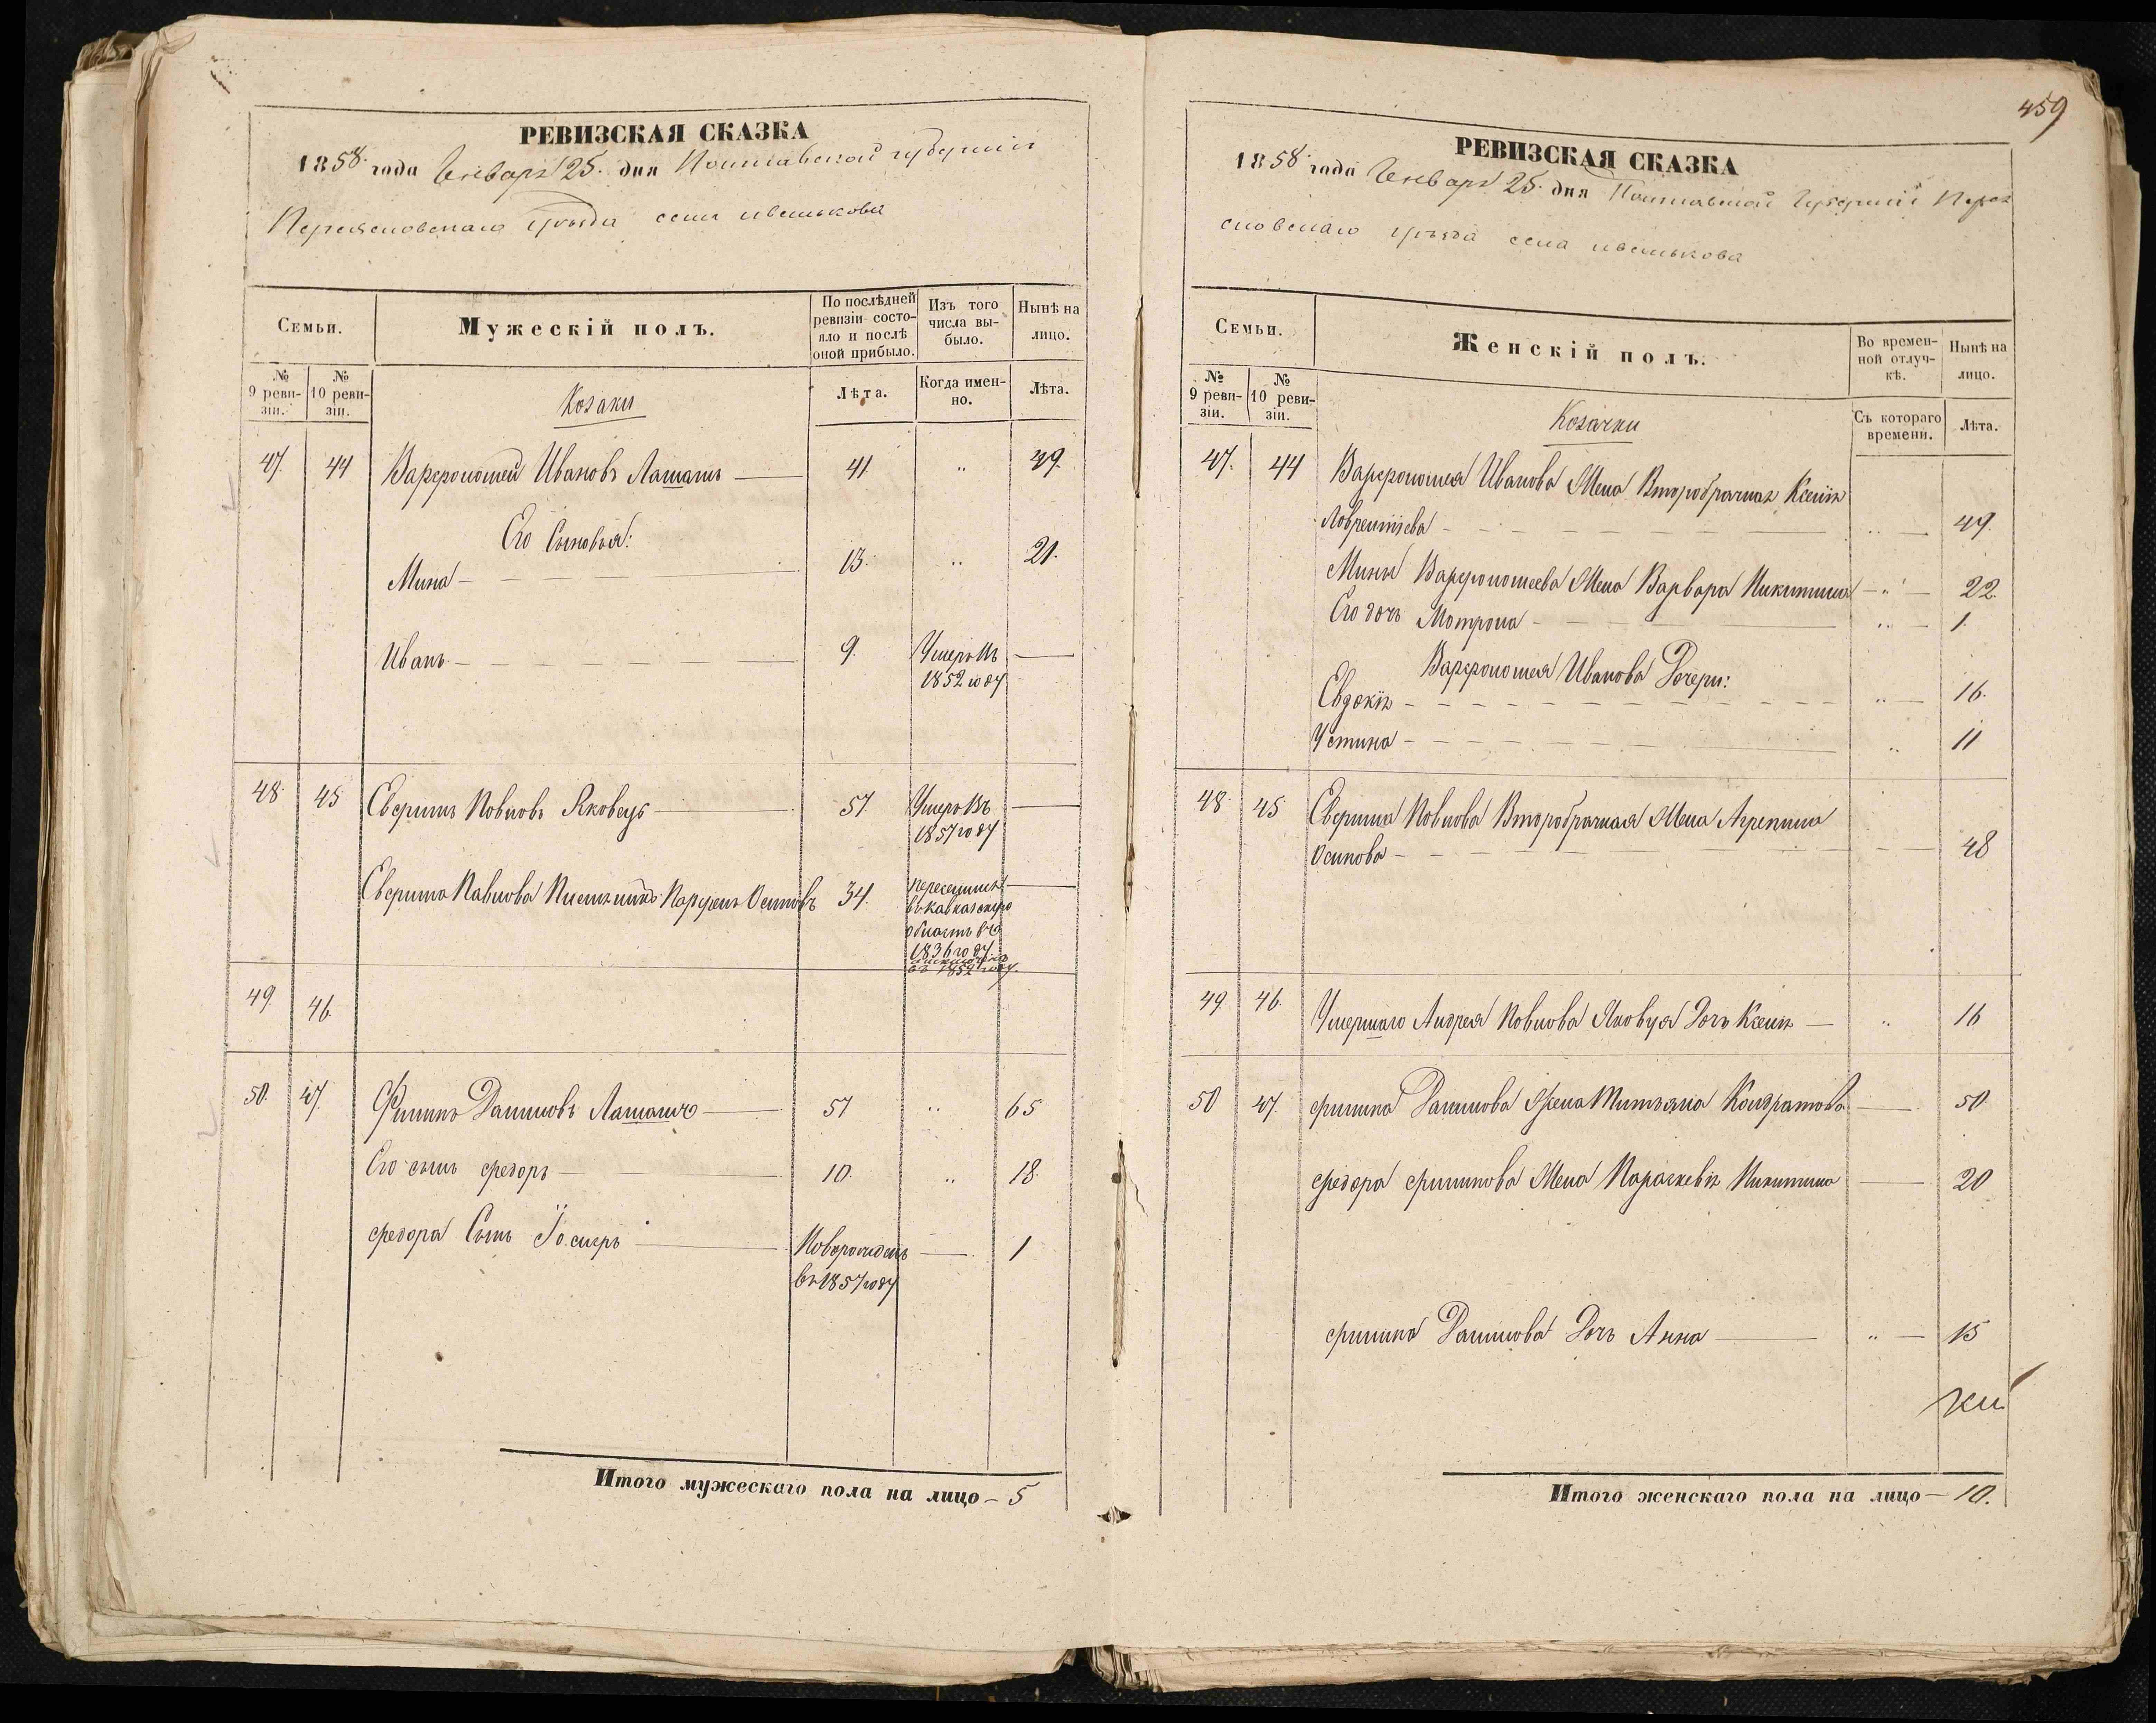 РЕВИЗСКАЯ СКАЗКА
1858 года Генваря 25. дня Полтавской губернии
Переясловскаго уѣзда села
Семьи.
Мужескій полъ.
По послѣдней ревизіи состояло и послѣ оной прибыло.
Изъ того числа выбыло.
Нынѣ на лицо.
№ 9 ревизіи.
№ 10 ревизіи.
Козаки
Лѣта.
Когда именно.
Лѣта.
47. 44 Варфоломей Ивановъ Латышъ 41 „ 49.
Его Сыновья:
Мина 13. „ 21.
Иванъ 9. Умеръ въ
1852 году
48 45 Сверидъ Повловъ Яковецъ 57 Умеръ въ
1857 году
Павлова Парфенъ Осиповъ 34. переселился
в кавказскую
область въ
1836 году
въ 1852 году.
49 46.
50. 47. Филипъ Даниловъ 57 „ 65
Его сынъ федоръ 10. „ 18.
федора Сынъ Новорожденъ 1
въ 1857 году
Итого мужескаго пола на лицо – 5
459
РЕВИЗСКАЯ СКАЗКА
1858 года Генваря 25. дня Полтавской Губерніи Перея
словскаго уѣзда села
Семьи.
Женскій полъ.
Во временной отлучкѣ.
Нынѣ на лицо.
№ 9 ревизіи.
№ 10 ревизіи.
Козачки
Съ котораго времени.
Лѣта.
47. 44 Варфоломея Иванова Жена Второбрачная Ксенія
Ловрентіева „ 49.
Мины Варфоломеева Жена Варвара Никитина „ 22.
Его дочь Мотрона „ 1.
Варфоломея Иванова Дочери:
Евдокія „ 16.
Устина „ 11
48 45 Сверида Повлова Второбрачная Жена Агрепина
Осипова 48
49. 46. Умершаго Андрея Повлова Яковца Дочь Ксенія „ 16
50 47. филипа Данилова Жена Татьяна Кондратова 50
федора филипова Жена Параскевія Никитина 20
филипа Данилова Дочь Анна „ 15
Итого женскаго пола на лицо – 10.